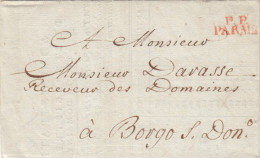 P.P.
PARME
A Monsieur
Monsieur Davasse
Receveur des Domaines
à Borgo S. Don.º